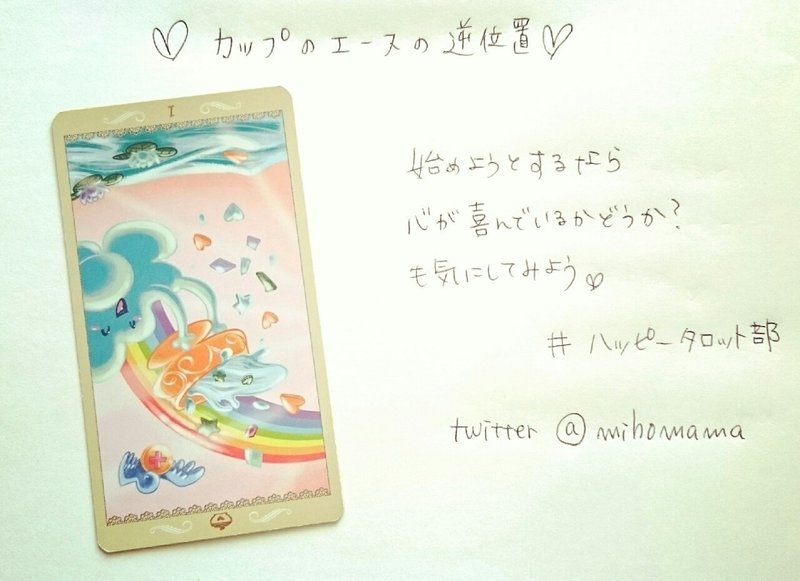 ♡ カップのエースの逆位置 ♡
I
始めようとするなら
心が喜んでいるかどうか?
も気にしてみよう♡
# ハッピータロット部
twitter @mihomama